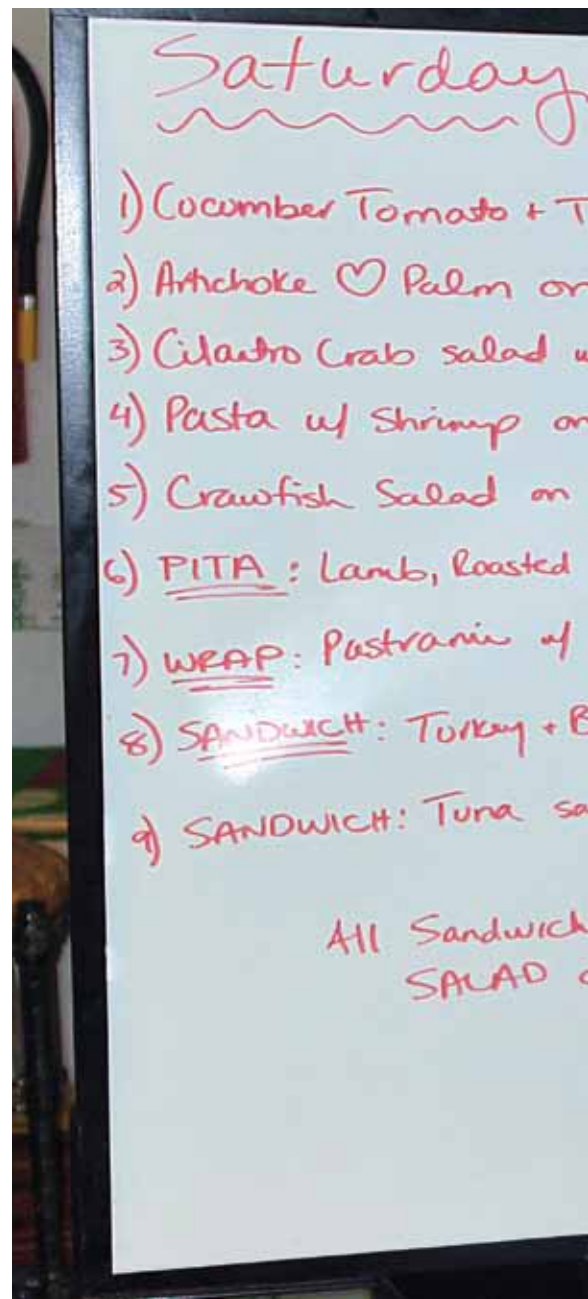 Saturday
1) Cocumber Tomato + T
2) Artichoke ♡ Palm on
3) Cilantro Crab salad w
4) Pasta w/ Shrimp on
5) Crawfish Salad on
6) PITA: Lamb, Roasted
7) WRAP: Pastrami w/
8) SANDWICH: Turkey + B
9) SANDWICH: Tuna sa
All Sandwich
SALAD